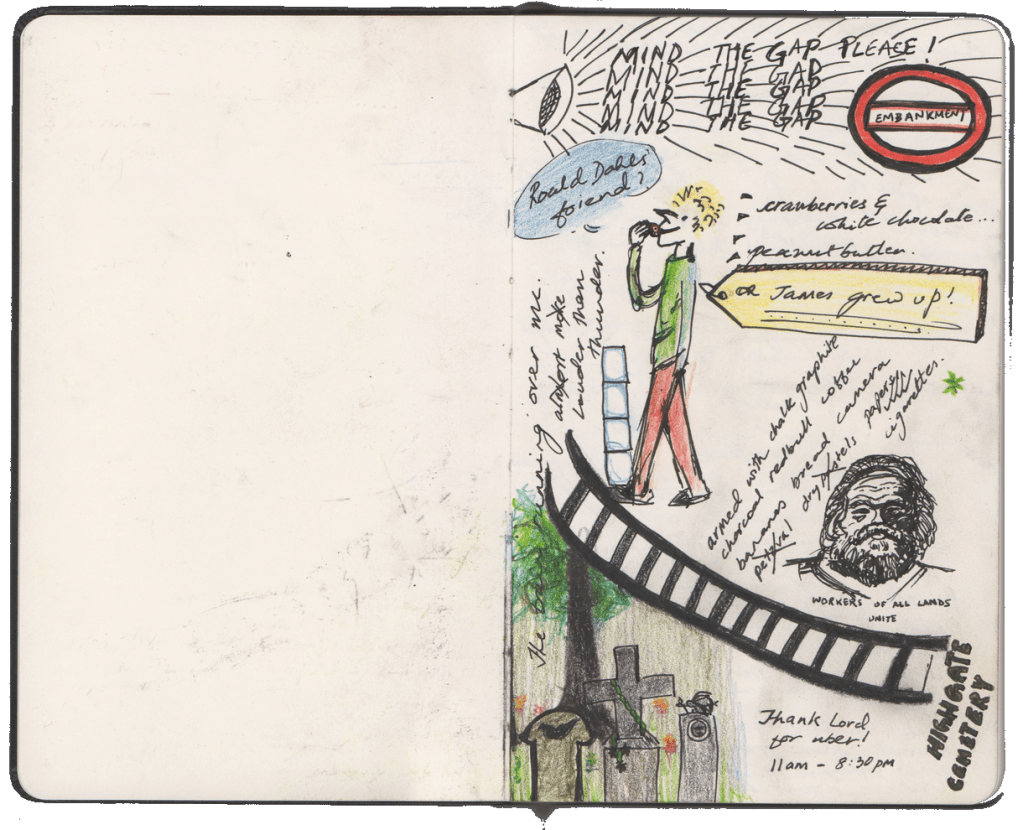 MIND THE GAP PLEASE!
MIND THE GAP
MIND THE GAP
MIND THE GAP
MIND THE GAP
EMBANKMENT
Roald Dahls'
friend?
cranberries &
white chocolate...
peanut butter.
OR James grew up!
The over me.
airport make
louder than
thunder.
armed with chalk graphite
charcoal redbull coffee
bananas bread camera
dry pastels papers
cigarettes.
WORKERS OF ALL LANDS
UNITE
HIGHGATE
CEMETERY
Thank Lord
for uber!
11am - 8:30pm